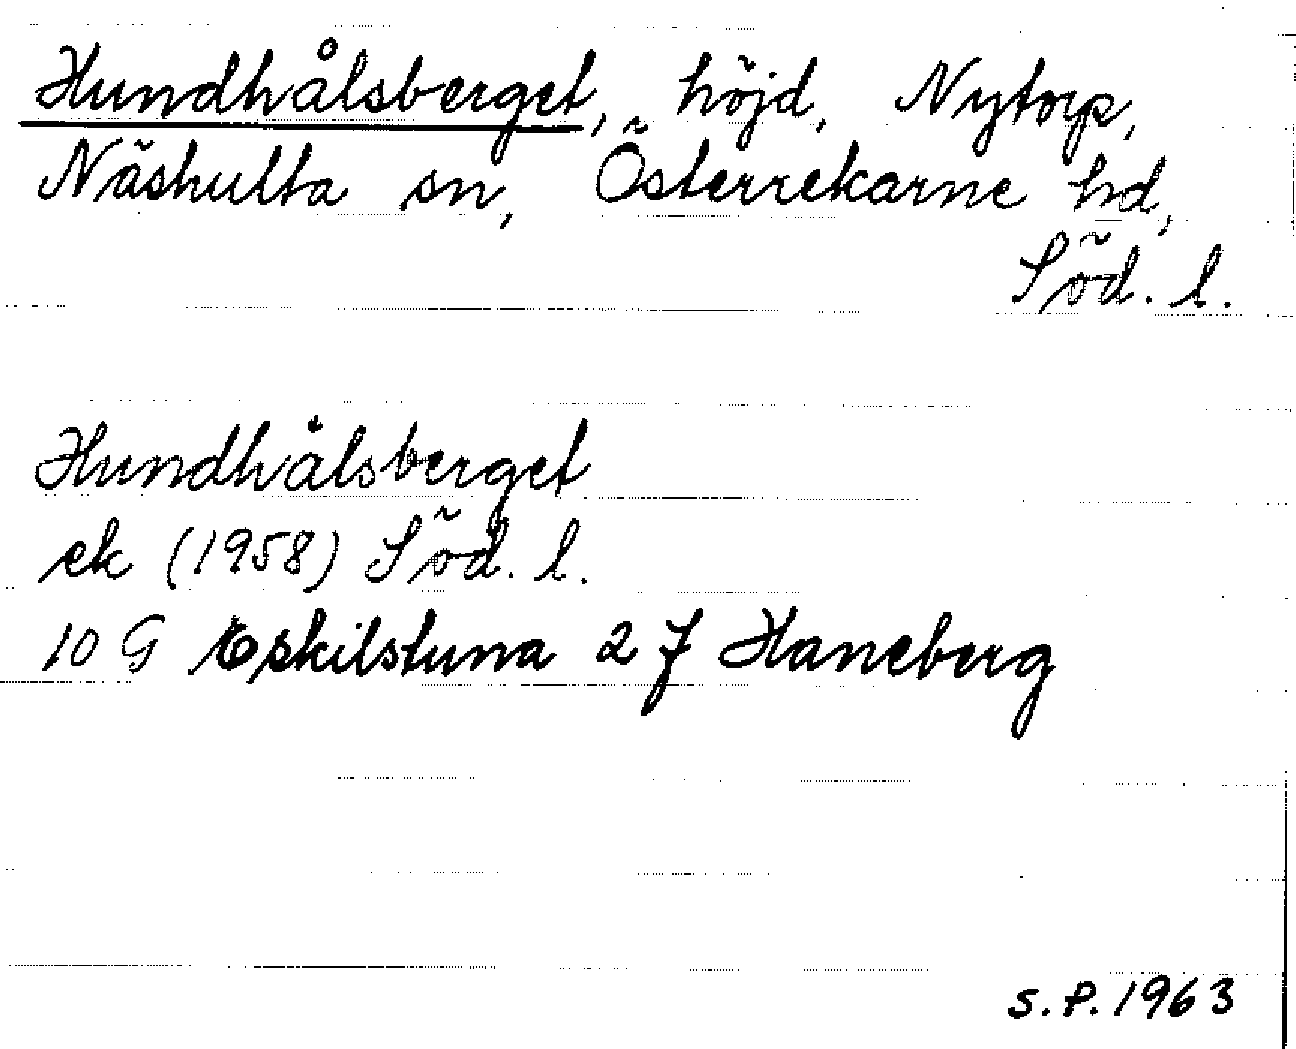 Hundhålsberget, höjd, Nytorp,
Näshulta sn, Österrekarne hd,
Söd. l.
Hundhålsberget
ek (1958) Söd. l.
10 G Eskilstuna 2 f Haneberg
S.P. 1963